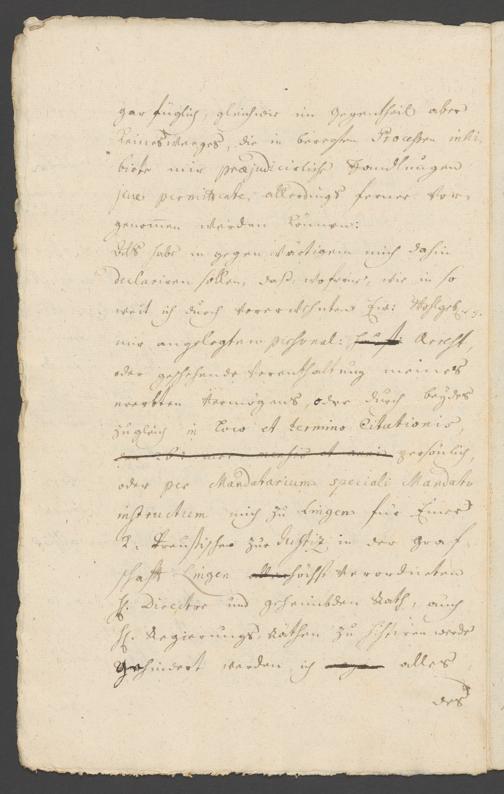 gar füglich, gleichwie im gegentheil aber
keinesweeges, die in berechten Processen inhi-
birte mir præjudicirliche Handlungen
jure permittente, allerdings ferner vor-
genommen werden können:
Als habe in gegenwärtigem mich dahin
declariren sollen, daß, wofern, wie in so
weit ich durch vorerwehnten Ew: Wohlgeb.
mir angelegten personal: Arrest,
oder geschehende Vorenthaltung meines
ererbten Vermögens, oder durch beydes
zugleich in loco et termino Citationis,
persönlich,
oder per Mandatarium speciali Mandato
instructum mich zu Lingen für Einer
K. Preußischer zur Justiz in der Graf-
schafft Lingen höchst verordneten
H. Directore und geheimbden Rath, auch
H. Regierungs Räthen zu sistiren werde
gehindert werden, ich alles
des